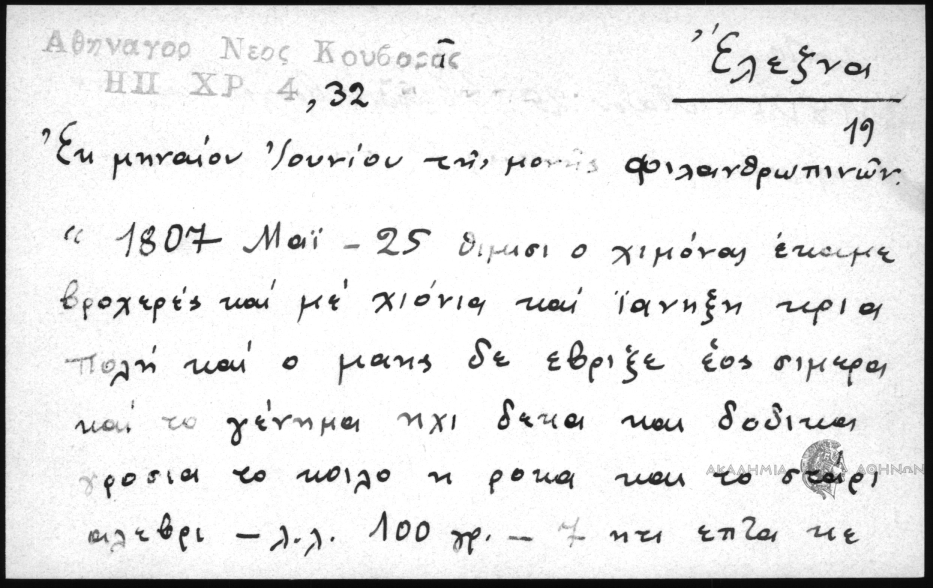 Ἔλεξνα
Αθηναγορ Νεος Κουβαρᾶς
ΗΠ ΧΡ 4,32
19
Ἐκ μηναίου Ἰουνίου τῆς μονῆς Φιλανθρωπινῶν.
“ 1807 Μαϊ – 25 θιμισι ο χιμόνας έκαμε
βροχερές καί μέ χιόνια καί ϊανηξη κρια
πολή καί ο μαης δε εβριξε έος σιμερα
καί το γένημα ηχι δεκα και δοδικα
γροσια το κοιλο η ροκα και το στάρι
αλεβρι – λ.λ. 100 γρ. – 7 ητι επτα κε
ΑΚΑΔΗΜΙΑ ΑΘΗΝΩΝ